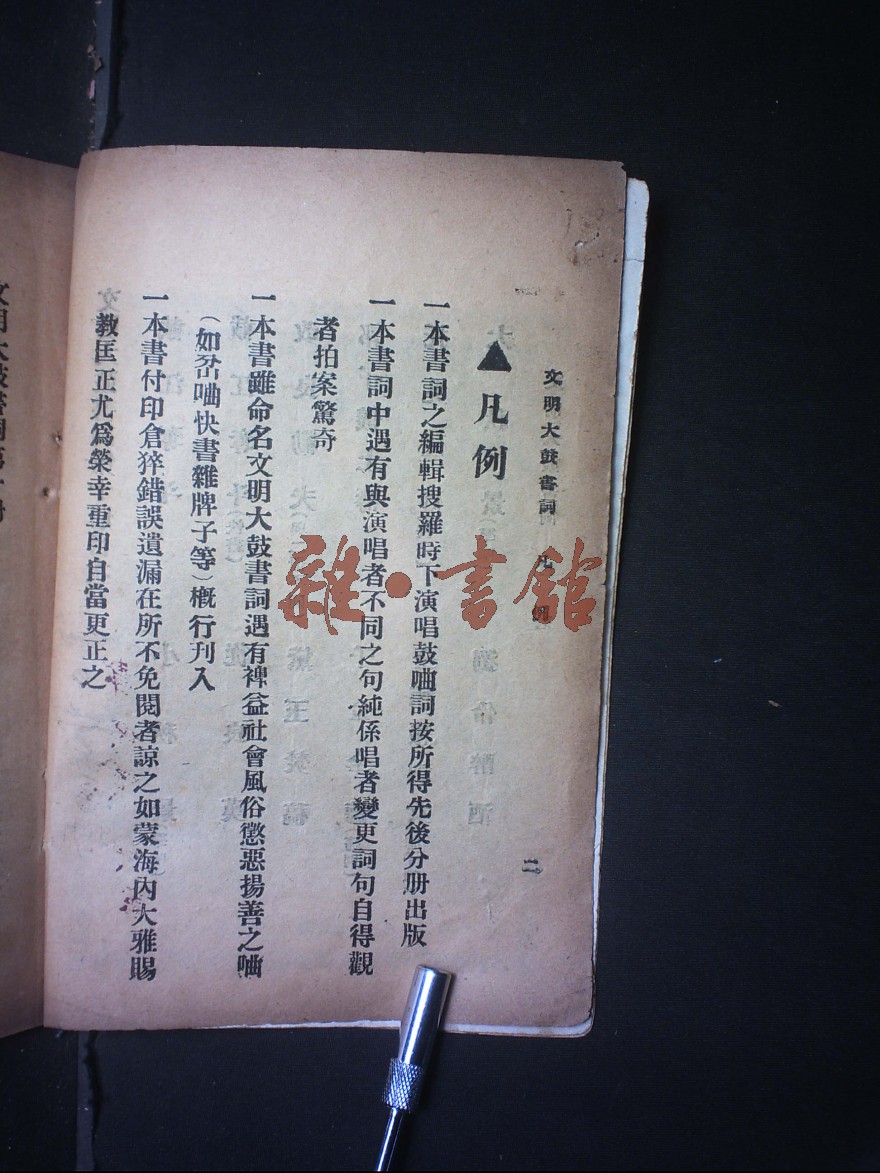 文明大鼓書詞　凡例　二
▲凡例
一本書詞之編輯搜羅時下演唱鼓㗂詞按所得先後分册出版
一本書詞中遇有與演唱者不同之句純係唱者變更詞句自得觀
者拍案驚奇
一本書雖命名文明大鼓書詞遇有裨益社會風俗懲惡揚善之㗂
（如岔㗂快書雜牌子等）概行刊入
一本書付印倉猝錯誤遺漏在所不免閱者諒之如蒙海內大雅賜
教匡正尤爲榮幸重印自當更正之
文明大鼓書詞第十册
雜·書館